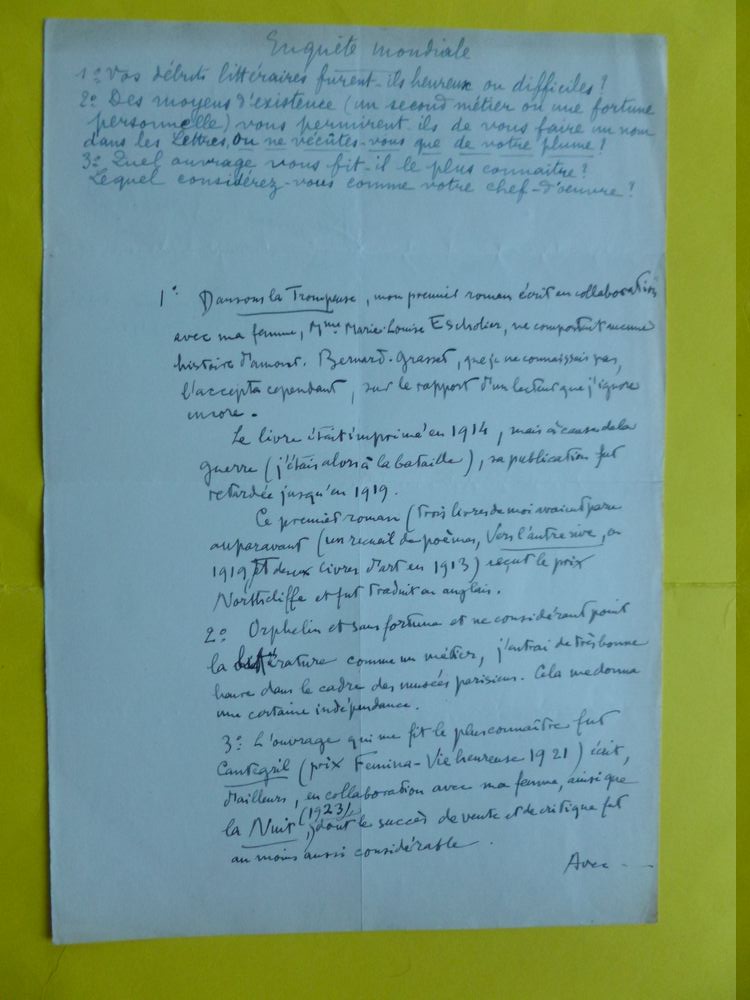 Enquête mondiale
1º Vos débuts littéraires furent-ils heureux ou difficiles ?
2º Des moyens d'existence (un second métier ou une fortune
personnelle) vous permirent-ils de vous faire un nom
dans les Lettres, ou ne vécûtes-vous que de votre plume ?
3º Quel ouvrage vous fit-il le plus connaître ?
Lequel considérez-vous comme votre chef-d'oeuvre ?
1º Dansons la Trompeuse, mon premier roman écrit en collaboration
avec ma femme, Mme Marie-Louise Escholier, ne comportait aucune
histoire d'amour. Bernard-Grasset, que je ne connaissais pas,
l'accepta cependant, sur le rapport d'un lecteur que j'ignore
encore.
Le livre était imprimé en 1914, mais à cause de la
guerre (j'étais alors à la bataille), sa publication fut
retardée jusqu'en 1919.
Ce premier roman (trois livres de moi avaient paru
auparavant (un recueil de poèmes, Vers l'autre rive, en
1919, et deux livres d'art en 1913) reçut le prix
Northcliffe et fut traduit en anglais.
2º Orphelin et sans fortune et ne considérant point
la littérature comme un métier, j'entrai de très bonne
heure dans le cadre des musées parisiens. Cela me donna
une certaine indépendance.
3º L'ouvrage qui me fit le plus connaître fut
Cantegril (prix Femina-Vie heureuse 1921) écrit,
d'ailleurs, en collaboration avec ma femme, ainsi que
la Nuit (1923), dont le succès de vente et de critique fut
au moins aussi considérable.
Avec